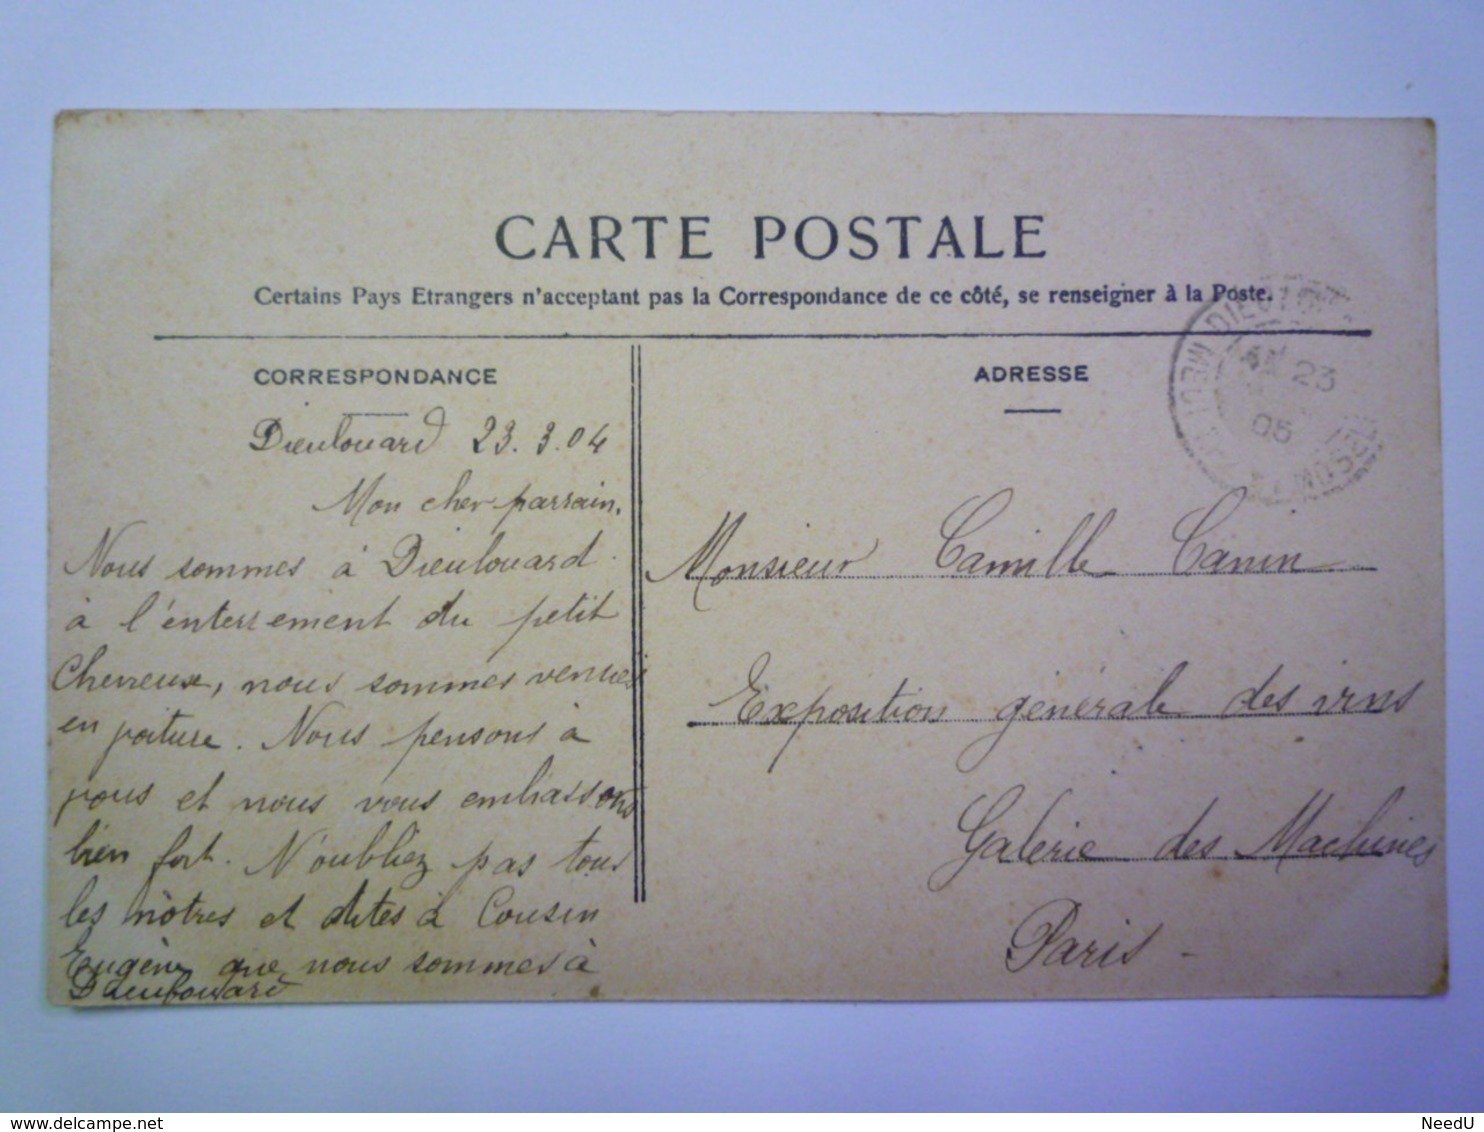 CARTE POSTALE
Certains Pays Etrangers n'acceptent pas la Correspondance de ce côté, se renseigner à la Poste.
CORRESPONDANCE
Dieulouard 23.3.04
Mon cher parrain,
Nous sommes à Dieulouard
à l'enterrement du petit
Chevreux, nous sommes venues
en voiture. Nous pensons à
vous et nous vous embrassons
bien fort. N'oubliez pas tous
les nôtres et dites à Cousin
Eugène que nous sommes à
Dieulouard
ADRESSE
Monsieur Camille Canin
Exposition générale des vins
Galerie des Machines
Paris -
23
05
delcampe.net
NeedU